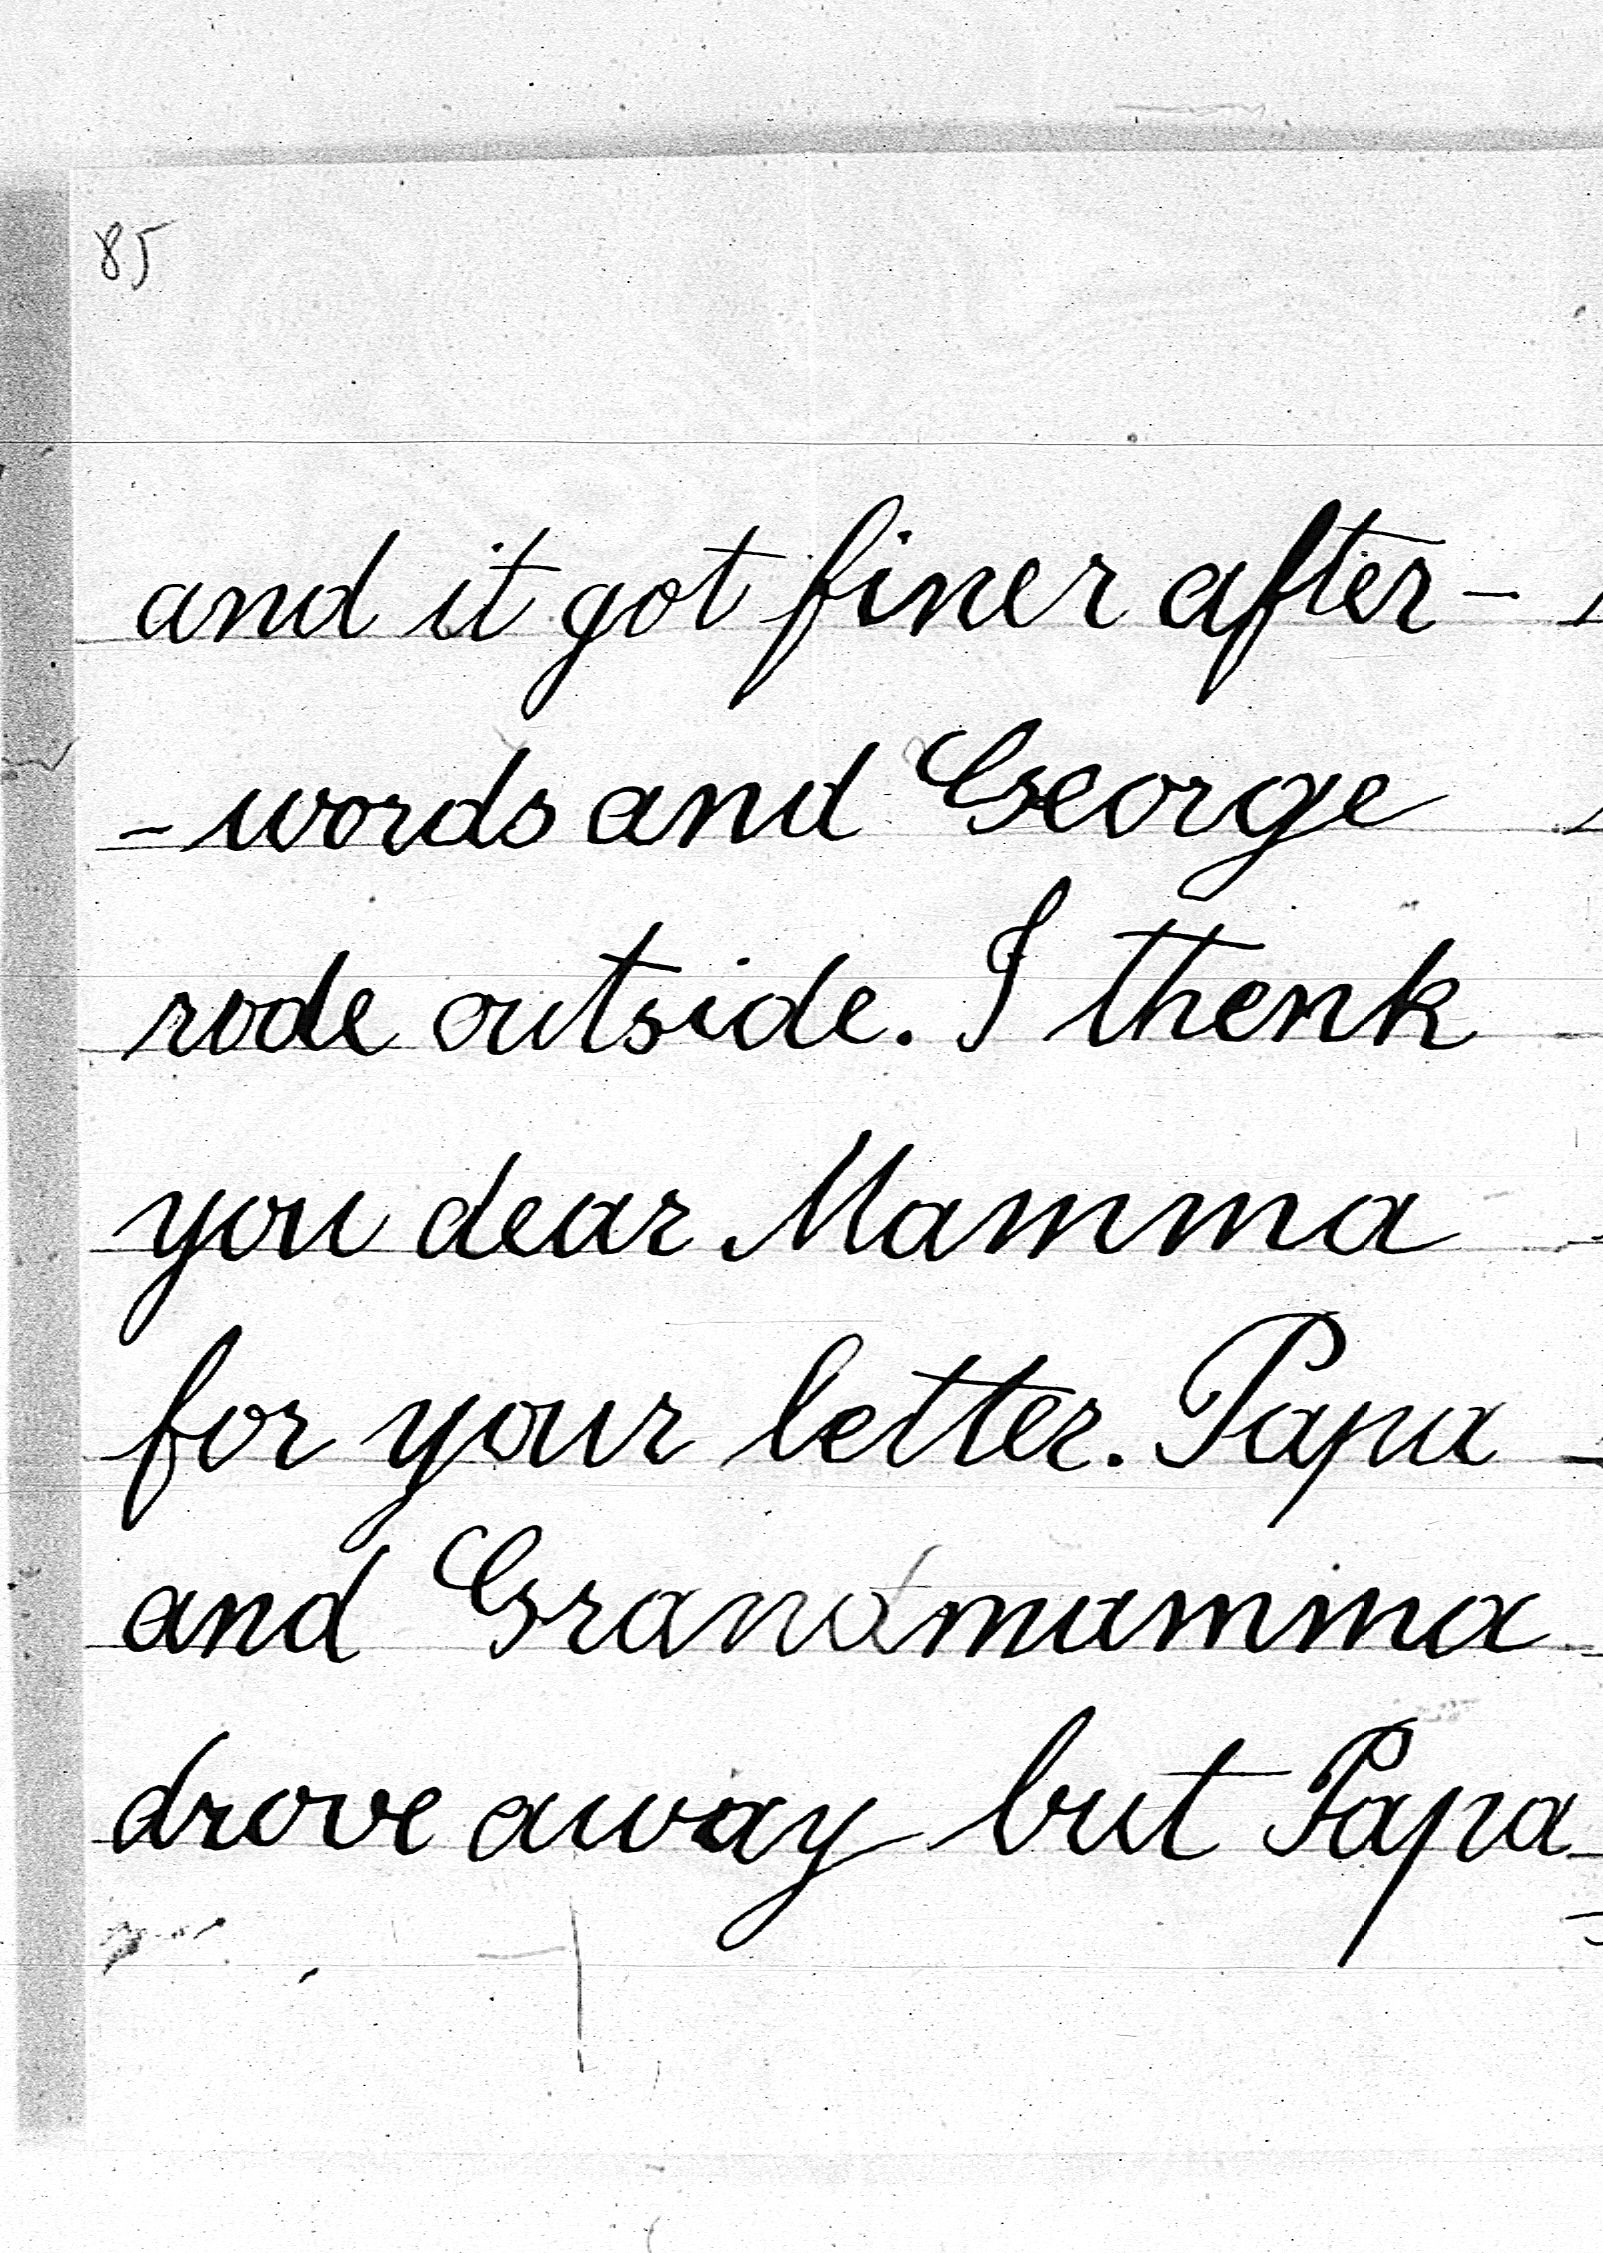 85
and it got finer after-
-words and George
rode outside. I thenk
you dear Mamma
for your letter. Papa
and Grandmamma
drove away but Papa